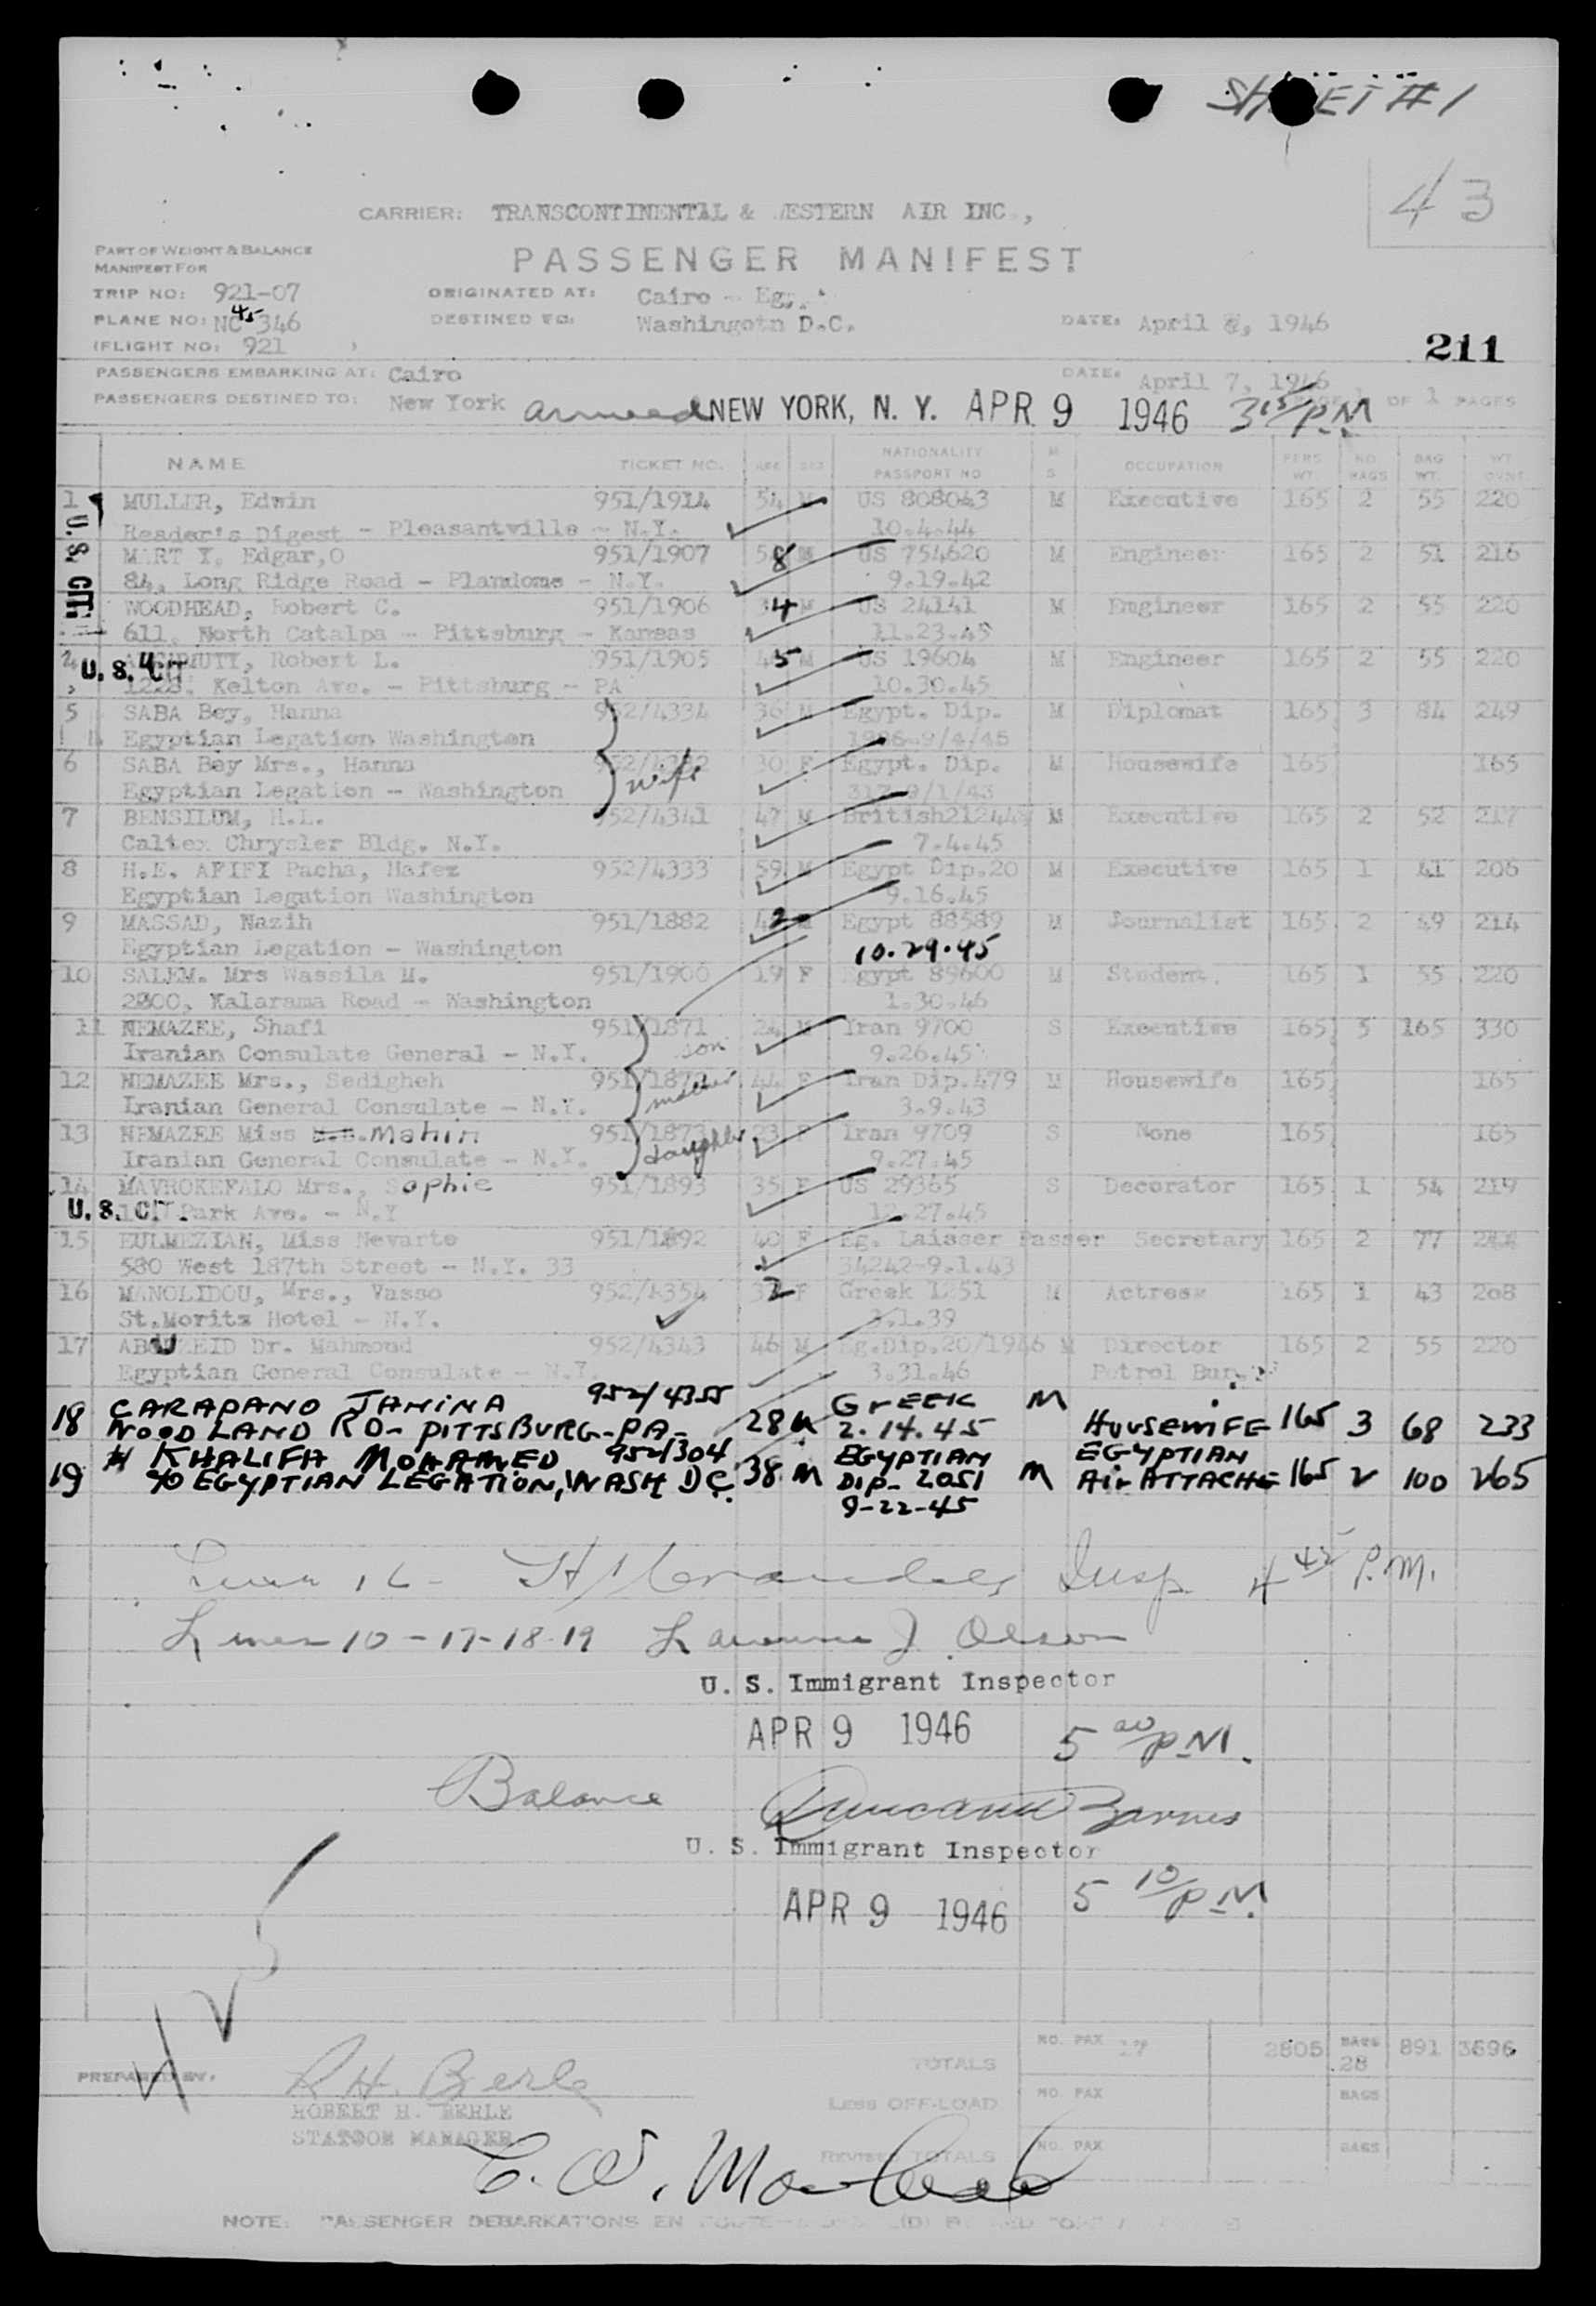 SHEET #1
43
CARRIER: TRANSCONTINENTAL & WESTERN AIR INC.,
PART OF WEIGHT & BALANCE
MANIFEST FOR
PASSENGER MANIFEST
TRIP NO: 921-07 ORIGINATED AT: Cairo - Egypt
PLANE NO: NC 45 346 DESTINED TO: Washingotn D.C. DATE: April 8, 1946
(FLIGHT NO: 921 )
211
PASSENGERS EMBARKING AT: Cairo DATE: April 7, 1946
PASSENGERS DESTINED TO: New York arrived NEW YORK, N. Y. APR 9 1946 3 15/P.M PAGE 1 OF 1 PAGES
NAME TICKET NO. AGE SEX NATIONALITY PASSPORT NO M S OCCUPATION PERS WT. NO BAGS BAG WT. WT.
1 MULLER, Edwin 951/1914 54 M US 808043 M Executive 165 2 55 220
Reader's Digest - Pleasantville - N.Y. 10.4.44
U.S. CIT.
Edgar,O 951/1907 58 M US 754620 M Engineer 165 2 51 216
84, Long Ridge Road - Plandome - N.Y. 9.19.42
WOODHEAD, Robert C. 951/1906 34 M US 24141 M Engineer 165 2 55 220
611, North Catalpa - Pittsburg - Kansas 11.23.45
4 Robert L. 951/1905 45 M US 19604 M Engineer 165 2 55 220
U. S. CIT
Kelton Ave. - Pittsburg - PA 10.30.45
5 SABA Bey, Hanna 952/4334 36 M Egypt. Dip. M Diplomat 165 3 84 249
Egyptian Legation Washington 9/4/45
6 SABA Bey Mrs., Hanna wife 30 F Egypt. Dip. M Housewife 165 165
Egyptian Legation - Washington
7 BENSILUM, H.L. 952/4341 47 M British M Executive 165 2 52 217
Caltex Chrysler Bldg. N.Y. 7.4.45
8 H.E. AFIFI Pacha, Hafez 952/4333 59 M Egypt Dip.20 M Executive 165 1 41 206
Egyptian Legation Washington 9.16.45
9 MASSAD, Nazih 951/1882 42 M Egypt 88589 M Journalist 165 2 49 214
Egyptian Legation - Washington 10.29.45
10 SALEM. Mrs Wassila M. 951/1900 19 F Egypt 89600 M Student. 165 1 55 220
Kalarama Road - Washington 1.30.46
11 NEMAZEE, Shafi 951/1871 son 24 M Iran 9700 S Executive 165 5 165 330
Iranian Consulate General - N.Y. 9.26.45
12 NEMAZEE Mrs., Sedigheh 951/1872 mother 44 F Iran Dip.479 M Housewife 165 165
Iranian General Consulate - N.Y. 3.9.43
13 NEMAZEE Miss Mahin 951/1873 daughter 23 F Iran 9709 S None 165 165
Iranian General Consulate - N.Y. 9.27.45
14 MAVROKEFALO Mrs., Sophie 951/1893 35 F US 29365 S Decorator 165 1 54 219
U. S. CIT. Park Ave. - N.Y 12.27.45
15 EULMEZIAN, Miss Nevarte 951/1892 40 F Eg. Laisser Passer Secretary 165 2 77
580 West 187th Street - N.Y. 33 34242-9.1.43
16 MANOLIDOU, Mrs., Vasso 952/4354 32 F Greek 1251 M Actress 165 1 43 208
St.Moritz Hotel - N.Y. 3.1.39
17 ABOUZEID Dr. Mahmoud 952/4343 46 M Eg.Dip.20/1946 M Director 165 2 55 220
Egyptian General Consulate - N.Y. 3.31.46 Petrol Bur.
18 CARAPANO JANINA 952/4355 28 GREEK M HOUSEWIFE 165 3 68 233
WOODLAND RD- PITTSBURG-PA- 2.14.45
19 KHALIFA MOHAMED 952/304 38 M EGYPTIAN M EGYPTIAN 165 2 100 265
c/o EGYPTIAN LEGATION, WASH DC. DIP- 2051 Air ATTACHE
9-22-45
16 - Insp. 4 45 P.M.
Lines 10-17-18-19 Lawrence J. Olson
U. S. Immigrant Inspector
APR 9 1946 5 00/P.M.
Balance Barnes
U. S. Immigrant Inspector
APR 9 1946 5 10/P.M.
PREPARED BY. R H. Berle
ROBERT H. BERLE
STATSOM MANAGER
TOTALS NO. PAX 17 2805 BAGS 28 891 3696
Less OFF-LOAD NO. PAX BAGS
REVISED TOTALS NO. PAX BAGS
C. W.
NOTE: PASSENGER DEBARKATIONS EN ROUTE